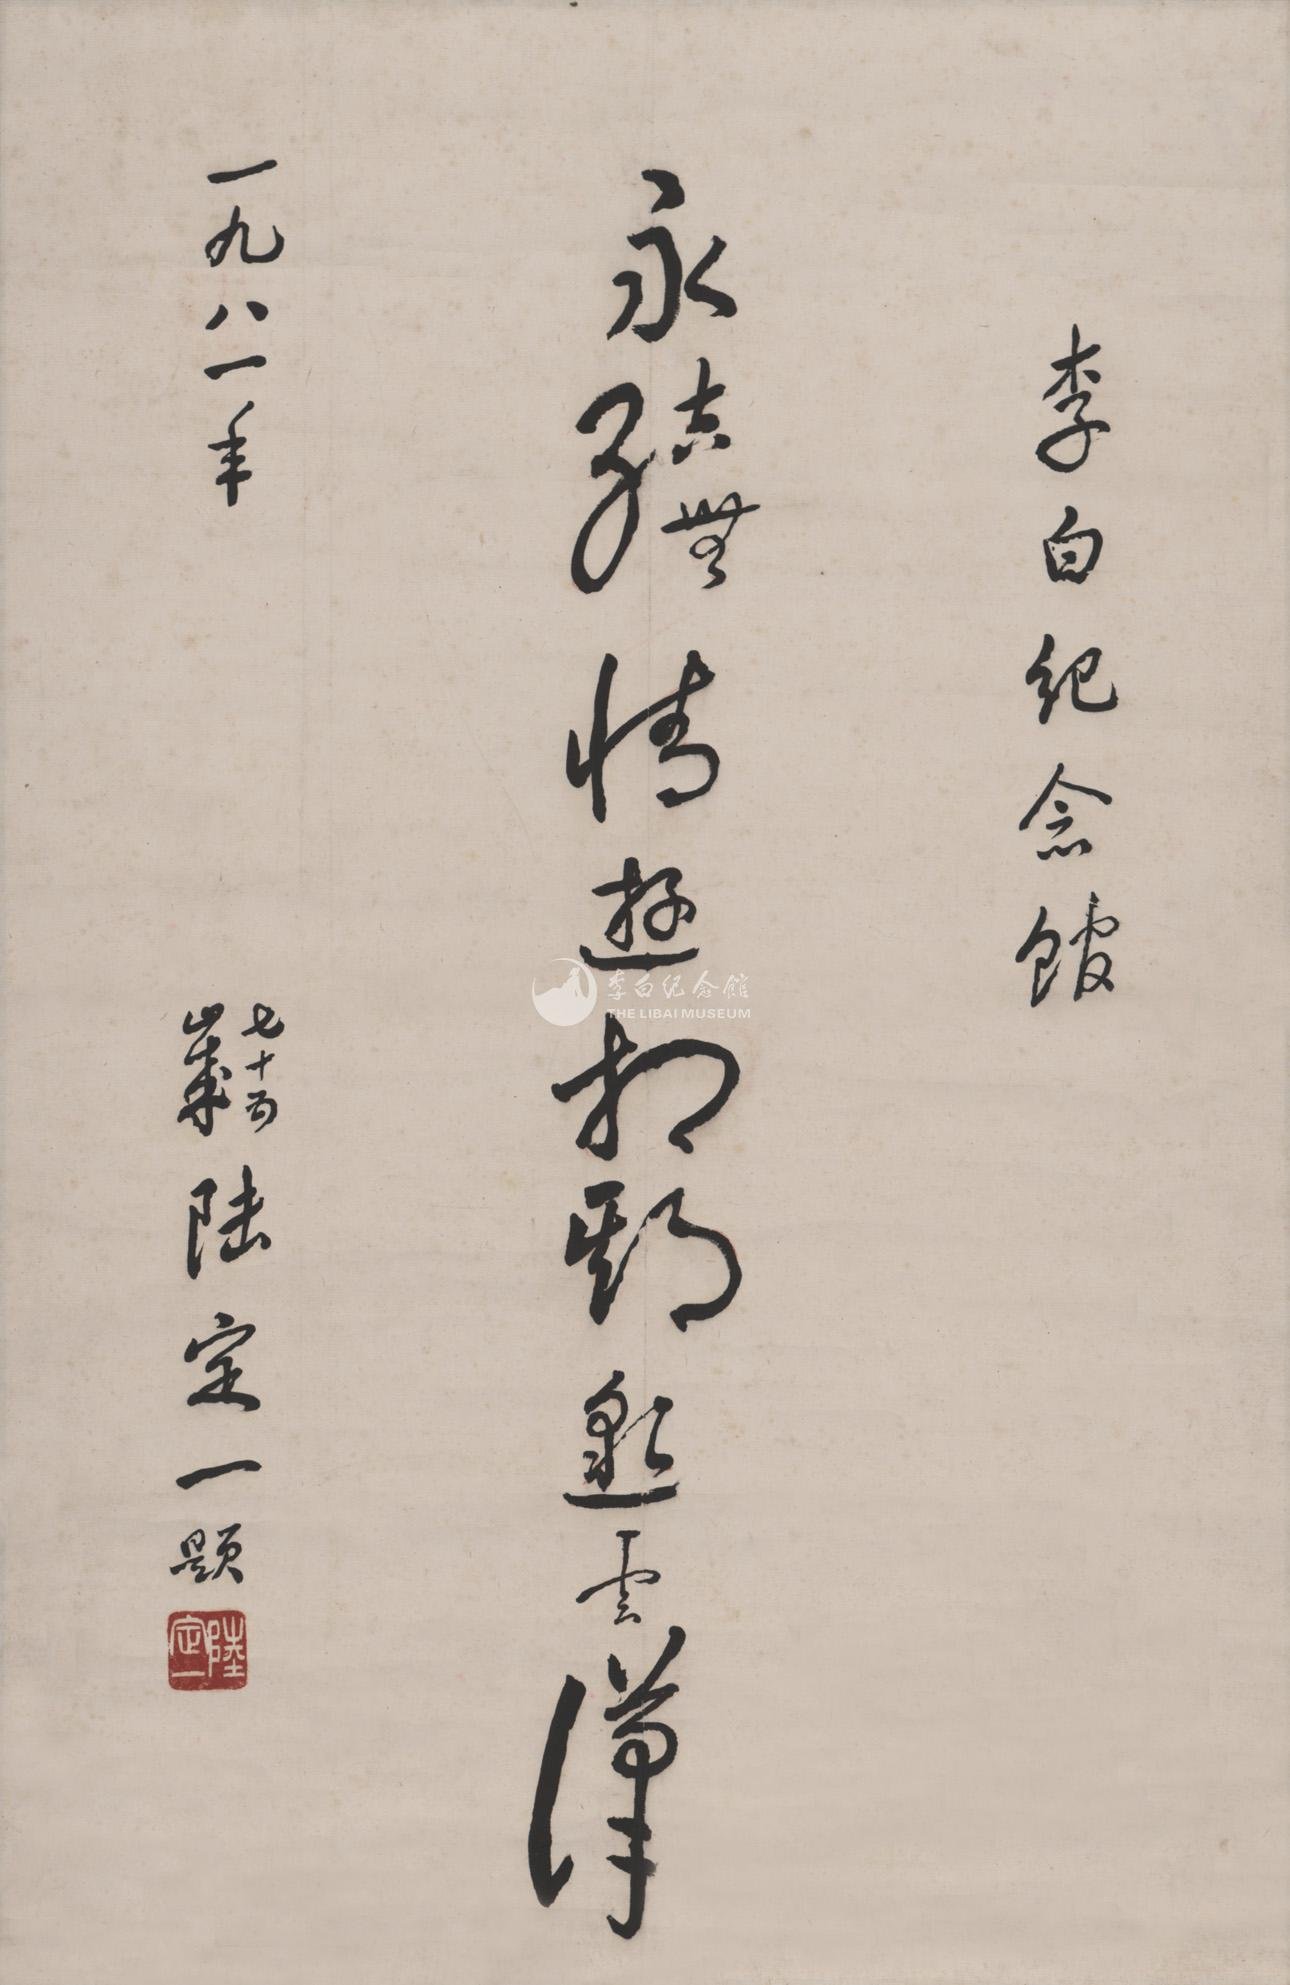 李白紀念館
永結無情遊相期邈雲漢
一九八一年 七十五歲陸定一題
陸定一
李白紀念館
THE LIBAI MUSEUM